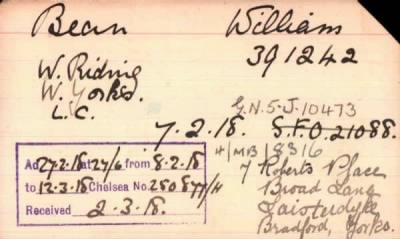 Bean William
391242
W. Riding
W. Yorks.
L.C.
G.N.5-J-10473
7.2.18. S.F.O.21088.
4/MB/18316
Ad 27.2.18 at 27/6 from 8.2.18
to 12.3.18 Chelsea No.
Received 2.3.18.
7 Roberts Place
Broad Lane
Laisterdyke
Bradford, Yorks.